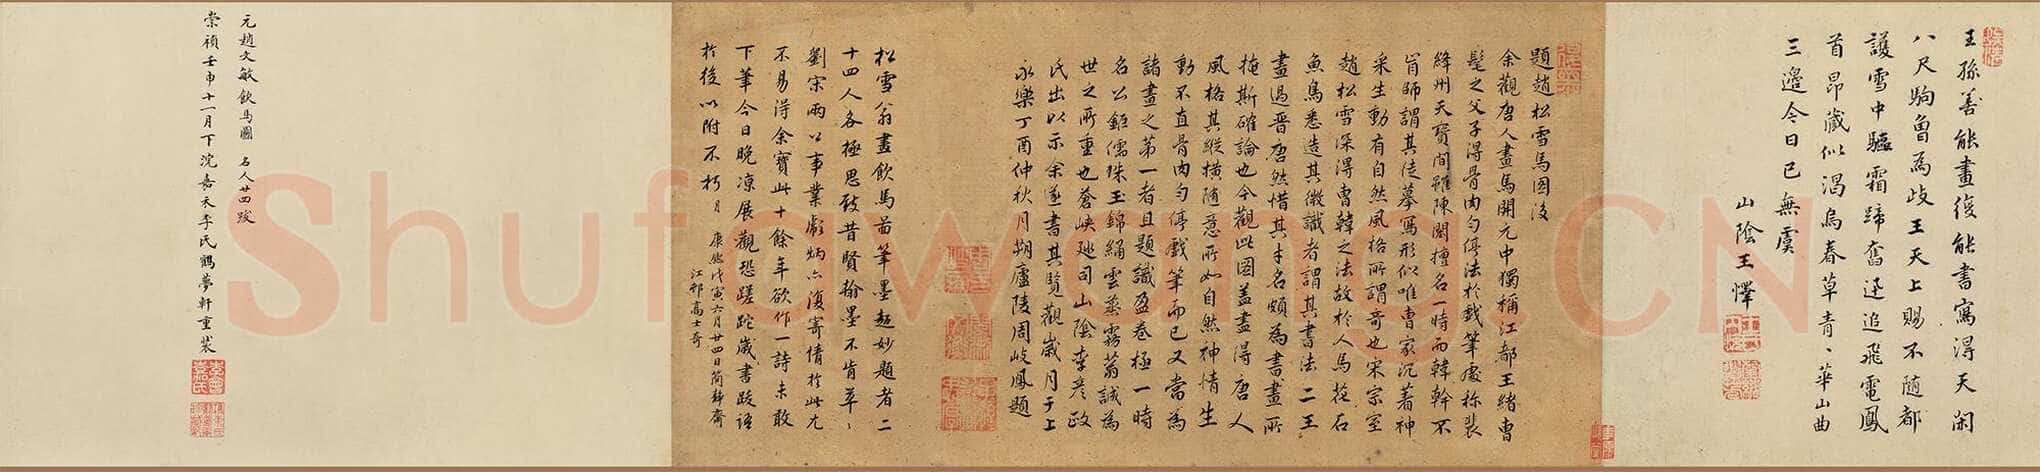 王孫善能畫復能書寫得天閑
八尺駒曾為歧王天上賜不隨都
護雪中驅霜蹄奮迅追飛電鳳
首昂藏似渴烏春草青〻華山曲
三邊今日已無虞
山陰王懌
題趙松雪馬圖後
余觀唐人畫馬開元中獨稱江都王緒曹
髦之父子得骨肉勻停法於戲筆處称裴
絳州天寶間雖陳閎擅名一時而韓幹不
肯師謂其徒摹寫形似唯曹家沉著神
采生動有自然風格所謂奇也宋宗室
趙松雪深得曹韓之法故於人馬花石
魚鳥悉造其微識者謂其書法二王
畫過晉唐然惜其才名頗為書畫所
掩斯確論也今觀此圖蓋盡得唐人
風格其縱橫隨意所如自然神情生
動不直骨肉勻停戲筆而已又當為
諸畫之第一者且題識盈卷極一時
名公鉅儒珠玉錦繡雲蒸霧蓊誠為
世之所重也蒼峽廵司山陰李彦政
氏出以示余遂書其覽觀歲月于上
永樂丁酉仲秋月朔廬陵周岐鳳題
松雪翁畫飲馬啚筆墨超妙題者二
十四人各極思致昔賢翰墨不肯草〻
劉宋兩公事業彪炳亦復寄情於此尤
不易得余寶此十餘年欲作一詩未敢
下筆今日晚凉展觀恐蹉跎歲書跋語
於後以附不朽
月
康熙戊寅六月廿四日簡靜齋
江邨高士奇
元趙文敏飲馬圖 名人廿四跋
崇禎壬申十一月下浣嘉禾李氏鶴夢軒重裝
Shufawang.CN